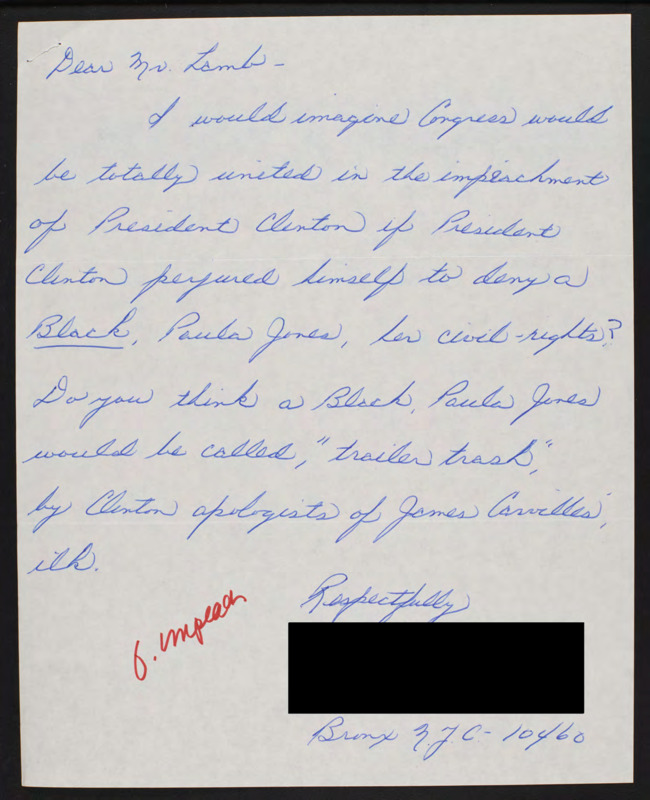 Dear Mr. Lamb -
I would imagine Congress would
be totally united in the impeachment
of President Clinton if President
Clinton perjured himself to deny a
Black, Paula Jones, her civil-rights?
Do you think a Black, Paula Jones
would be called, "trailer trash",
by Clinton apologists of James Carvilles',
ilk.
Respectfully
6. impeach
Bronx N.Y.C - 10460